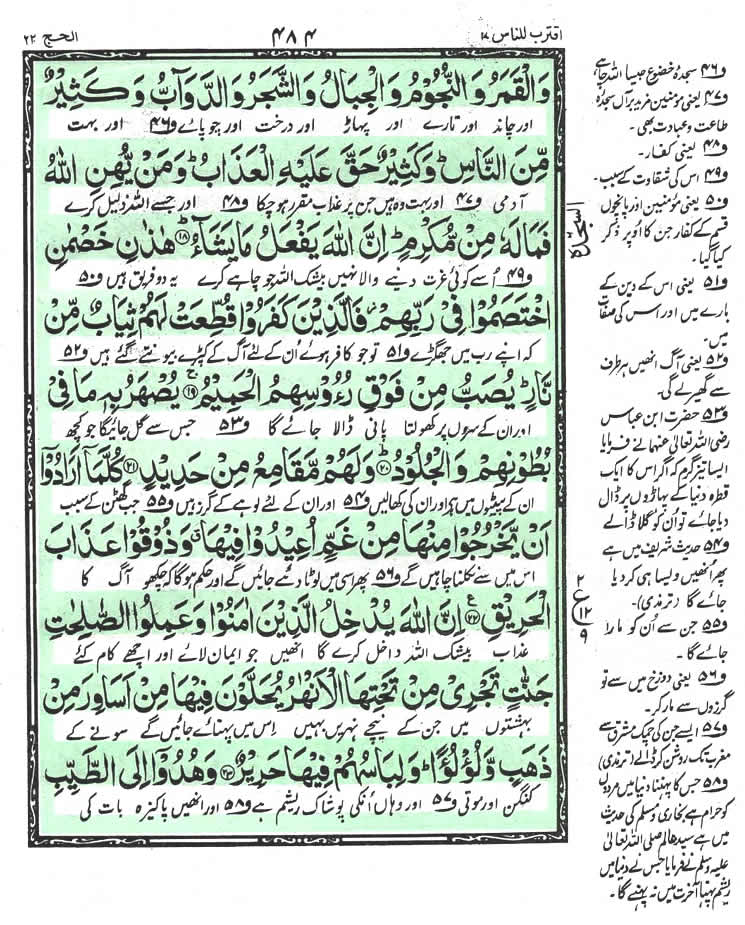 اقترب للناس ۱۷
۴۸۴
الحج ۲۲
وَالْقَمَرُ وَالنُّجُوْمُ وَالْجِبَالُ وَالشَّجَرُ وَالدَّوَآبُّ وَكَثِيْرٌ
اور چاند اور تارے اور پہاڑ اور درخت اور چوپائے ف۴۶ اور بہت
مِّنَ النَّاسِ ؕ وَكَثِيْرٌ حَقَّ عَلَيْهِ الْعَذَابُ ؕ وَمَنْ يُّهِنِ اللّٰهُ
آدمی ف۴۷ اور بہت وہ ہیں جن پر عذاب مقرر ہوچکا ف۴۸ اور جسے اللہ ذلیل کرے
فَمَا لَهٗ مِنْ مُّكْرِمٍ ؕ اِنَّ اللّٰهَ يَفْعَلُ مَا يَشَآءُ ؕ۱۸ هٰذٰنِ خَصْمٰنِ
ف۴۹ اُسے کوئی عزت دینے والا نہیں بیشک اللہ جو چاہے کرے یہ دو فریق ہیں ف۵۰
اخْتَصَمُوْا فِيْ رَبِّهِمْ ؗ فَالَّذِيْنَ كَفَرُوْا قُطِّعَتْ لَهُمْ ثِيَابٌ مِّنْ
کہ اپنے رب میں جھگڑے ف۵۱ تو جو کافر ہوئے اُن کے لئے آگ کے کپڑے بیونتے گئے ہیں ف۵۲
نَّارٍ ؕ يُصَبُّ مِنْ فَوْقِ رُءُوْسِهِمُ الْحَمِيْمُ ۚ۱۹ يُصْهَرُ بِهٖ مَا فِيْ
اور ان کے سروں پر کھولتا پانی ڈالا جائے گا ف۵۳ جس سے گل جائیگا جو کچھ
بُطُوْنِهِمْ وَالْجُلُوْدُ ؕ۲۰ وَلَهُمْ مَّقَامِعُ مِنْ حَدِيْدٍ ۲۱ كُلَّمَاۤ اَرَادُوْۤا
ان کے پیٹوں میں ہے اور ان کی کھالیں ف۵۴ اور ان کے لئے لوہے کے گرز ہیں ف۵۵ جب گھٹن کے سبب
اَنْ يَّخْرُجُوْا مِنْهَا مِنْ غَمٍّ اُعِيْدُوْا فِيْهَا ۗ وَذُوْقُوْا عَذَابَ
اس میں سے نکلنا چاہیں گے ف۵۶ پھر اسی میں لوٹا دئے جائیں گے اور حکم ہوگا کہ چکھو آگ کا
الْحَرِيْقِ ۲۲ اِنَّ اللّٰهَ يُدْخِلُ الَّذِيْنَ اٰمَنُوْا وَعَمِلُوا الصّٰلِحٰتِ
عذاب بیشک اللہ داخل کرے گا انھیں جو ایمان لائے اور اچھے کام کئے
جَنّٰتٍ تَجْرِيْ مِنْ تَحْتِهَا الْاَنْهٰرُ يُحَلَّوْنَ فِيْهَا مِنْ اَسَاوِرَ مِنْ
بہشتوں میں جن کے نیچے نہریں بہیں اِس میں پہنائے جائیں گے سونے کے
ذَهَبٍ وَّلُؤْلُؤًا ؕ وَلِبَاسُهُمْ فِيْهَا حَرِيْرٌ ۲۳ وَهُدُوْۤا اِلَى الطَّيِّبِ
کنگن اور موتی ف۵۷ اور وہاں اُنکی پوشاک ریشم ہے ف۵۸ اور انھیں پاکیزہ بات کی
السجدۃ
۲
ع
۱۲
۹
ف۴۶ سجدۂ خضوع جیسا اللہ چاہے
ف۴۷ یعنی مؤمنین مزید برآں سجدۂ
طاعت و عبادت بھی۔
ف۴۸ یعنی کفار۔
ف۴۹ اس کی شقاوت کے سبب۔
ف۵۰ یعنی مؤمنین اور پانچوں
قسم کے کفار جن کا اُوپر ذکر
کیا گیا۔
ف۵۱ یعنی اس کے دین کے
بارے میں اور اس کی صفات
میں۔
ف۵۲ یعنی آگ انھیں ہر طرف
سے گھیر لے گی۔
ف۵۳ حضرت ابن عباس
رضی اللہ تعالیٰ عنہما نے فرمایا
ایسا تیز گرم کہ اگر اس کا ایک
قطرہ دنیا کے پہاڑوں پر ڈال
دیا جائے تو ان کو گلا ڈالے
ف۵۴ حدیث شریف میں ہے
پھر اُنھیں ویسا ہی کردیا
جائے گا (ترمذی)۔
ف۵۵ جن سے اُن کو مارا
جائے گا۔
ف۵۶ یعنی دوزخ میں سے تو
گرزوں سے مار کر۔
ف۵۷ ایسے جن کی چمک مشرق سے
مغرب تک روشن کر ڈالے (ترمذی)
ف۵۸ جس کا پہننا دنیا میں مردوں
کو حرام ہے بخاری و مسلم کی حدیث
میں ہے سید عالم صلی اللہ تعالیٰ
علیہ وسلم نے فرمایا جس نے دنیا میں
ریشم پہنا آخرت میں نہ پہنے گا۔